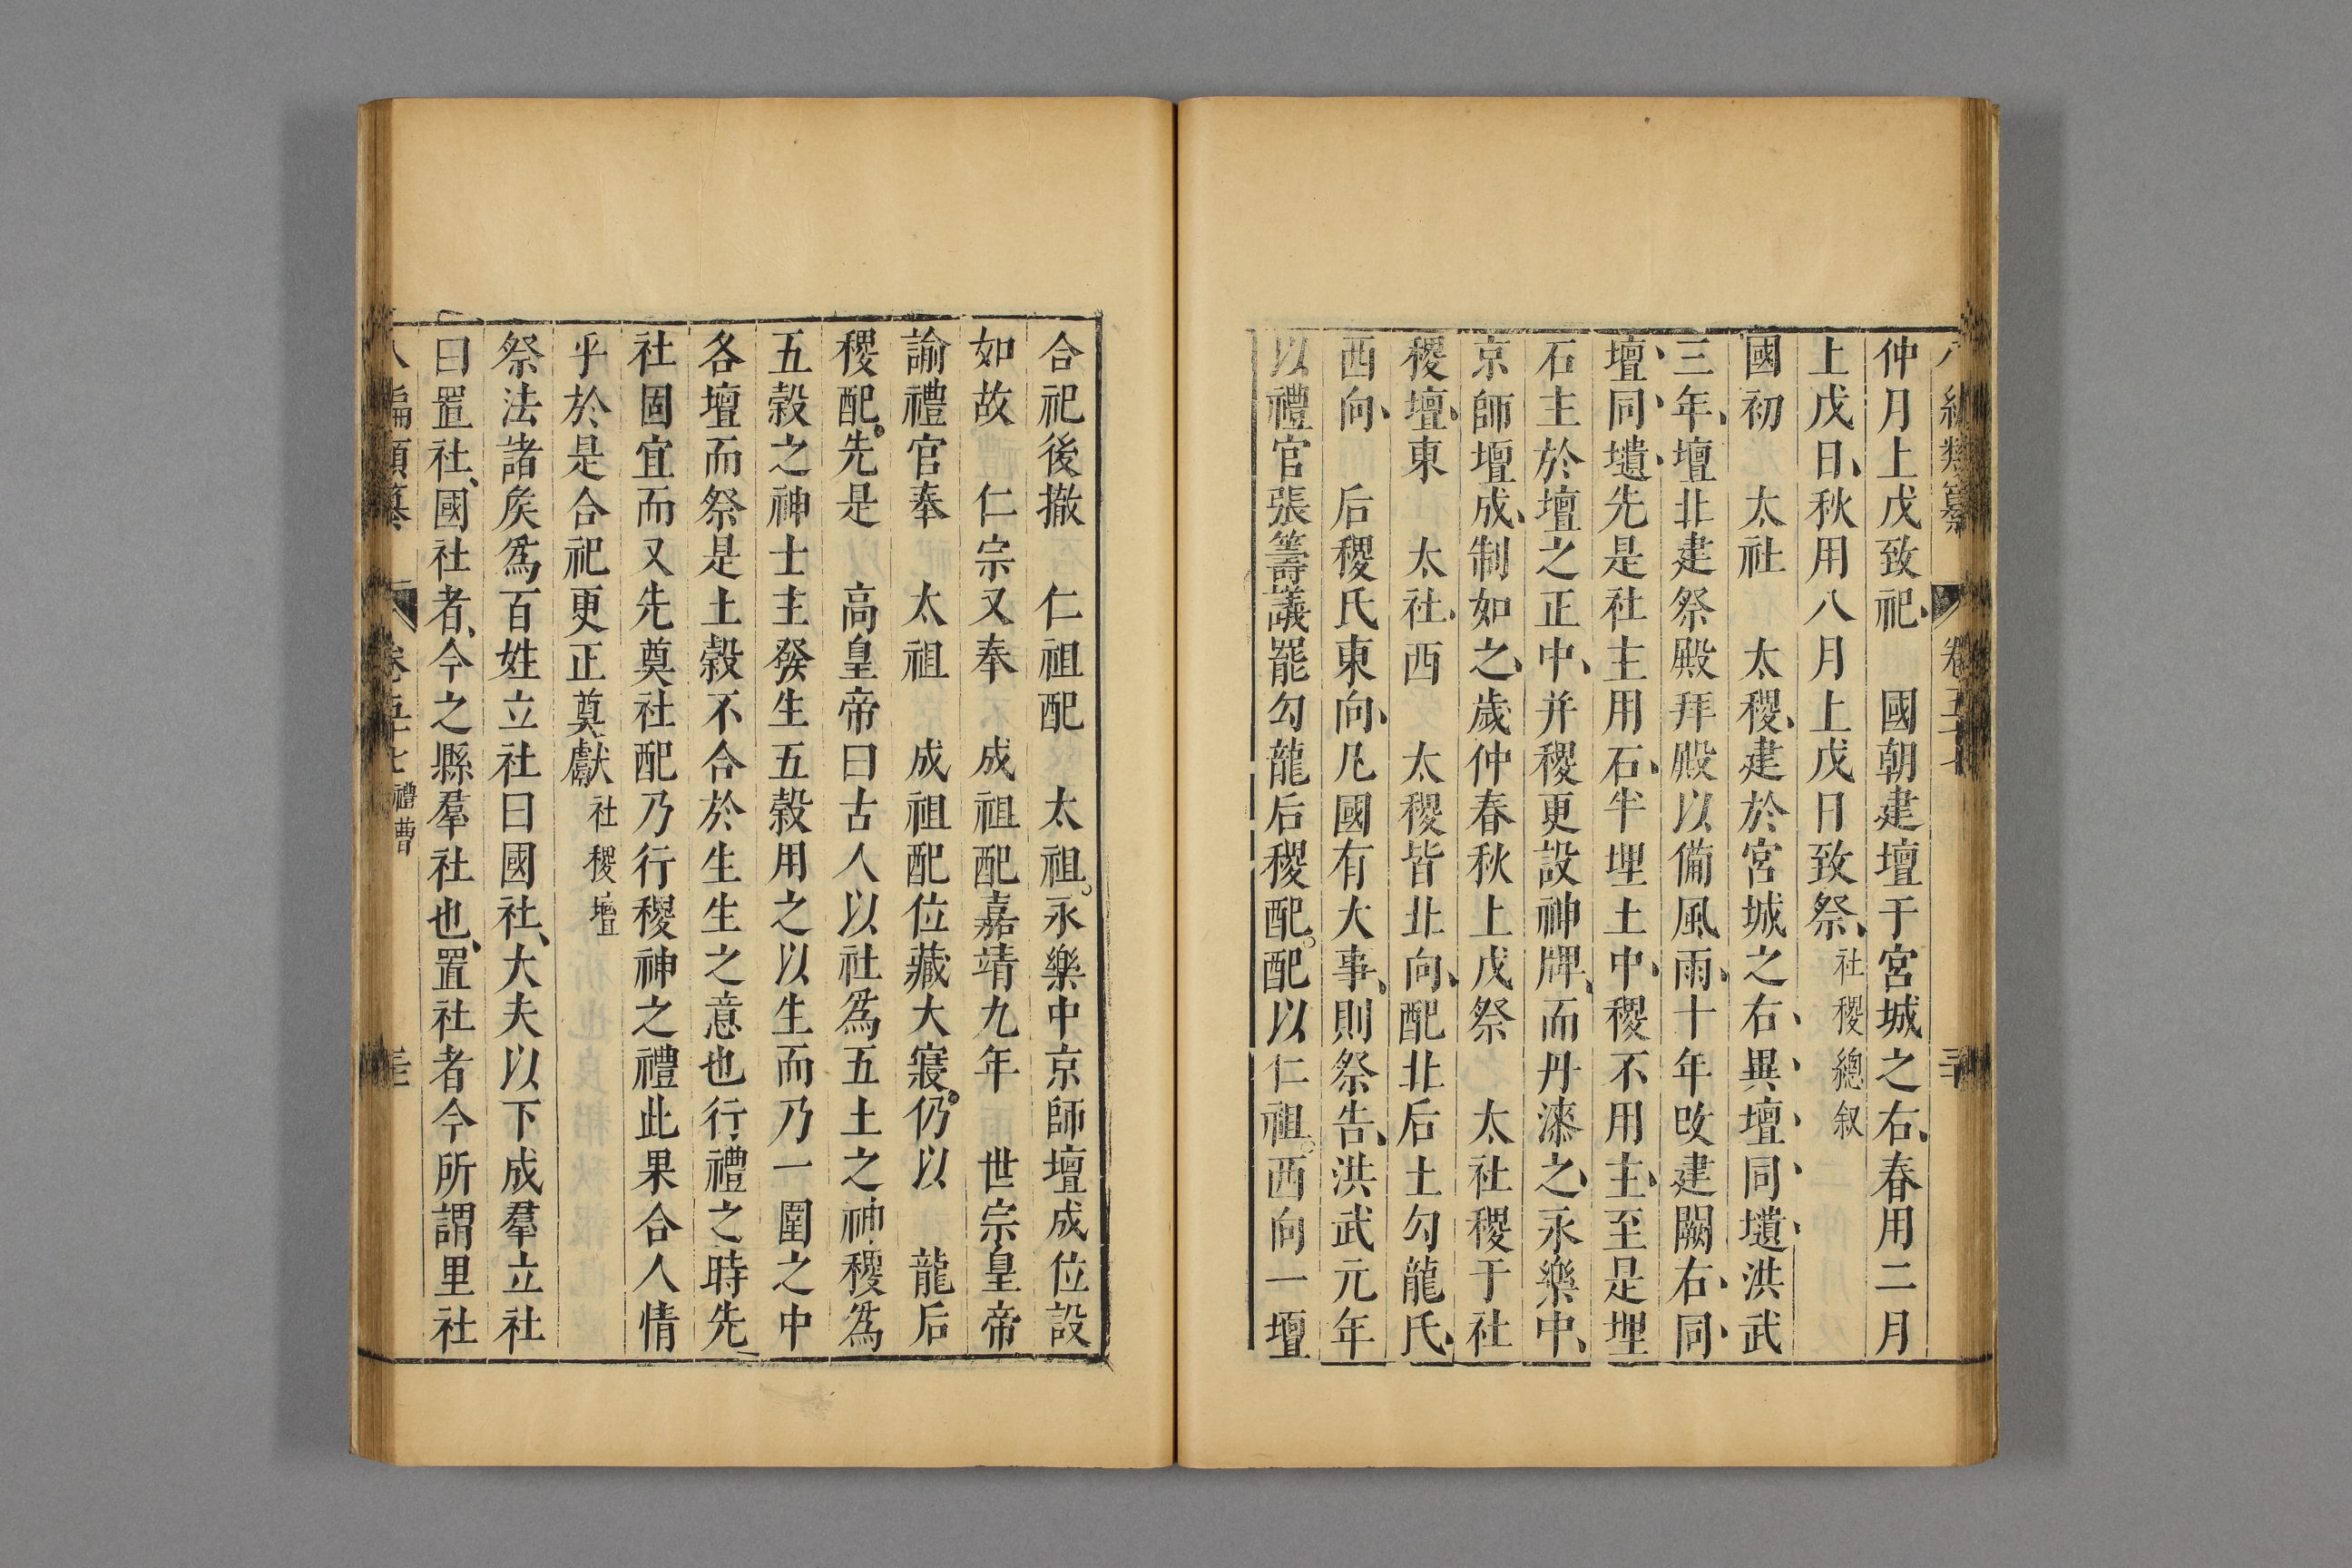 仲月上戊致祀國朝建壇于宮城之右春用二月
上戊日秋用八月上戊日致祭社稷總叙
國初太社太稷建於宮城之右異壇同壝洪武
三年壇北建祭殿拜殿以備風雨十年改建闕右同
壇同壝先是社主用石半埋土中稷不用主至是埋
石主於壇之正中并稷更設神牌而丹漆之永樂中
京師壇成制如之歲仲春秋上戊祭太社稷于社
稷壇東太社西太稷皆北向配北后土勾龍氏
西向后稷氏東向凡國有大事則祭告洪武元年
以禮官張籌議罷勾龍后稷配配以仁祖西向一壇
合祀後撤仁祖配太祖永樂中京師壇成位設
如故仁宗又奉成祖配嘉靖九年世宗皇帝
諭禮官奉太祖成祖配位藏大寢仍以龍后
稷配先是高皇帝曰古人以社爲五土之神稷爲
五穀之神士主發生五穀用之以生而乃一圍之中
各壇而祭是土穀不合於生生之意也行禮之時先
社固宜而又先奠社配乃行稷神之禮此果合人情
乎於是合祀更正奠獻社稷壇
祭法諸矦爲百姓立社曰國社大夫以下成羣立社
曰置社國社者今之縣羣社也置社者今所謂里社
八編類纂卷五十七禮曹